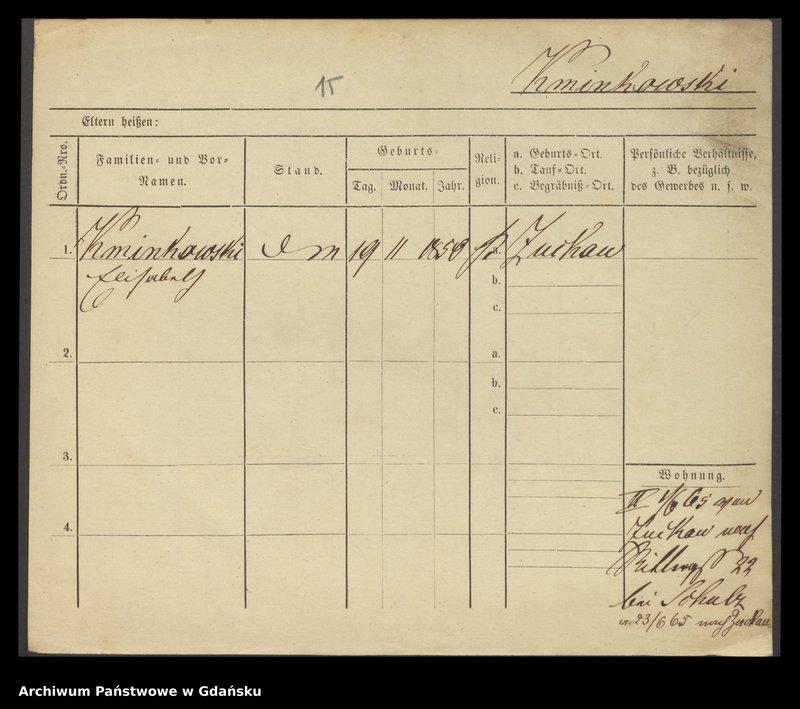 15
Kminkowski
Eltern heißen:
Ordn.-Nro.
Familien- und Vor-Namen.
Stand.
Geburts-
Tag.
Monat.
Jahr.
Reli-
gion.
a. Geburts-Ort.
b. Tauf-Ort.
c. Begräbniß-Ort.
Persönliche Verhältnisse,
z. B. bezüglich
des Gewerbes u. s. w.
1. Kminkowski D m 19 11 1850 k a. Zuckau
Elisabeth
b.
c.
2.
a.
b.
c.
3.
4.
Wohnung.
III 1/6 65 von
Zuckau nach
22
bei Schulz
23/6 65 nach Zuckau
Archiwum Państwowe w Gdańsku